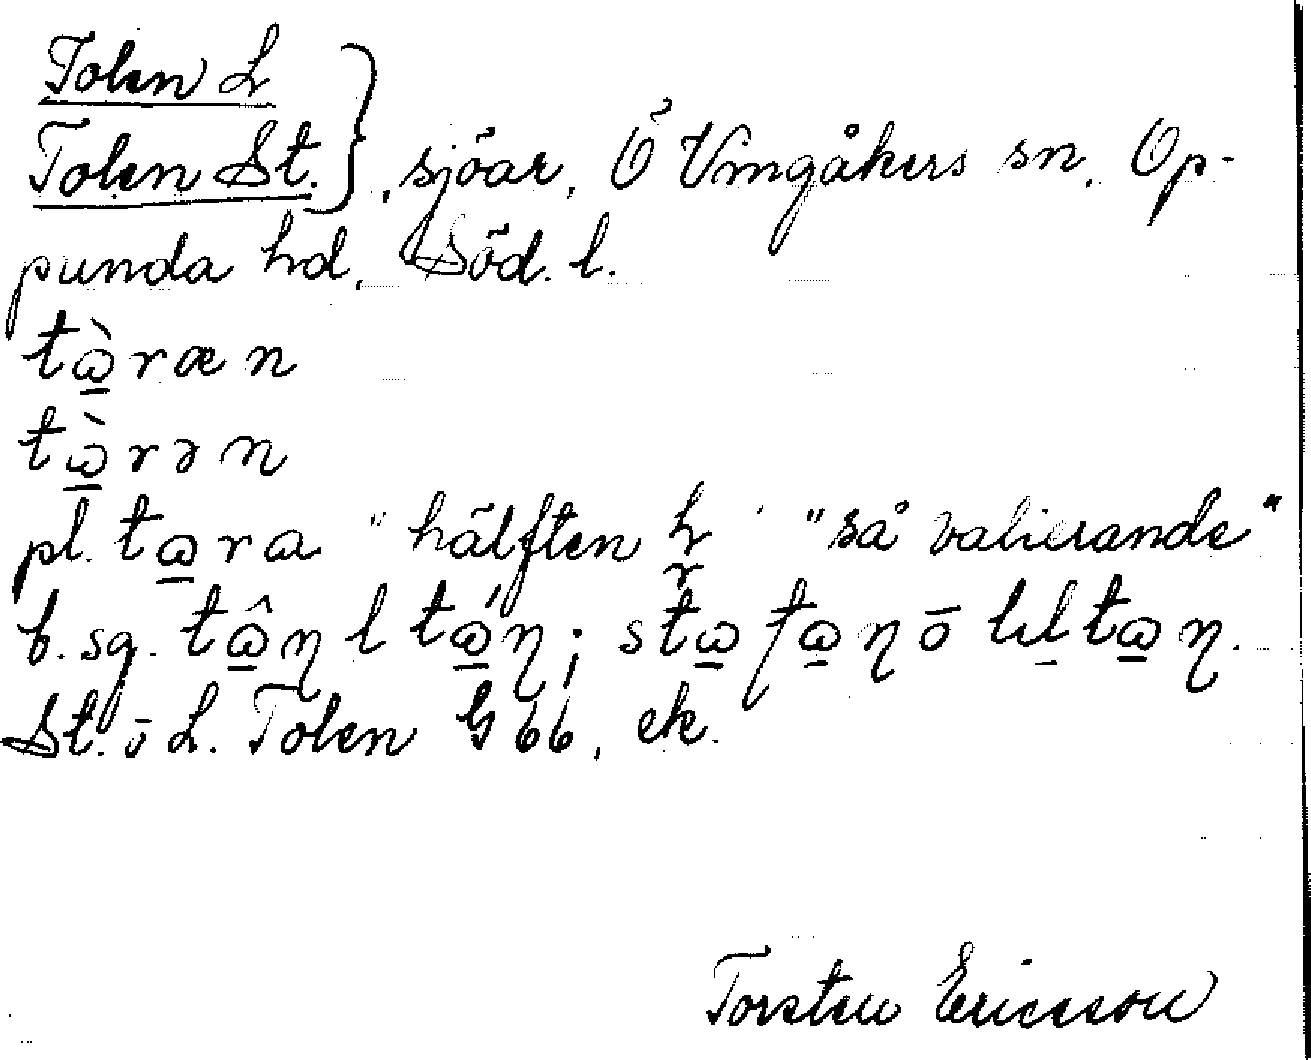 Tolen L
Tolen St. } , sjöar, Ö Vingåkers sn, Op-
punda hd, Söd. l.
tɷ̱̀ræn
tɷ̱̀rən
pl. tɷ̱ra "hälften "så valierande"
b. sg. tɷ̱̂ŋ l tɷ̱́ŋ; stɷ̱
St. o L. Tolen G 66, ek.
Torsten Ericsson